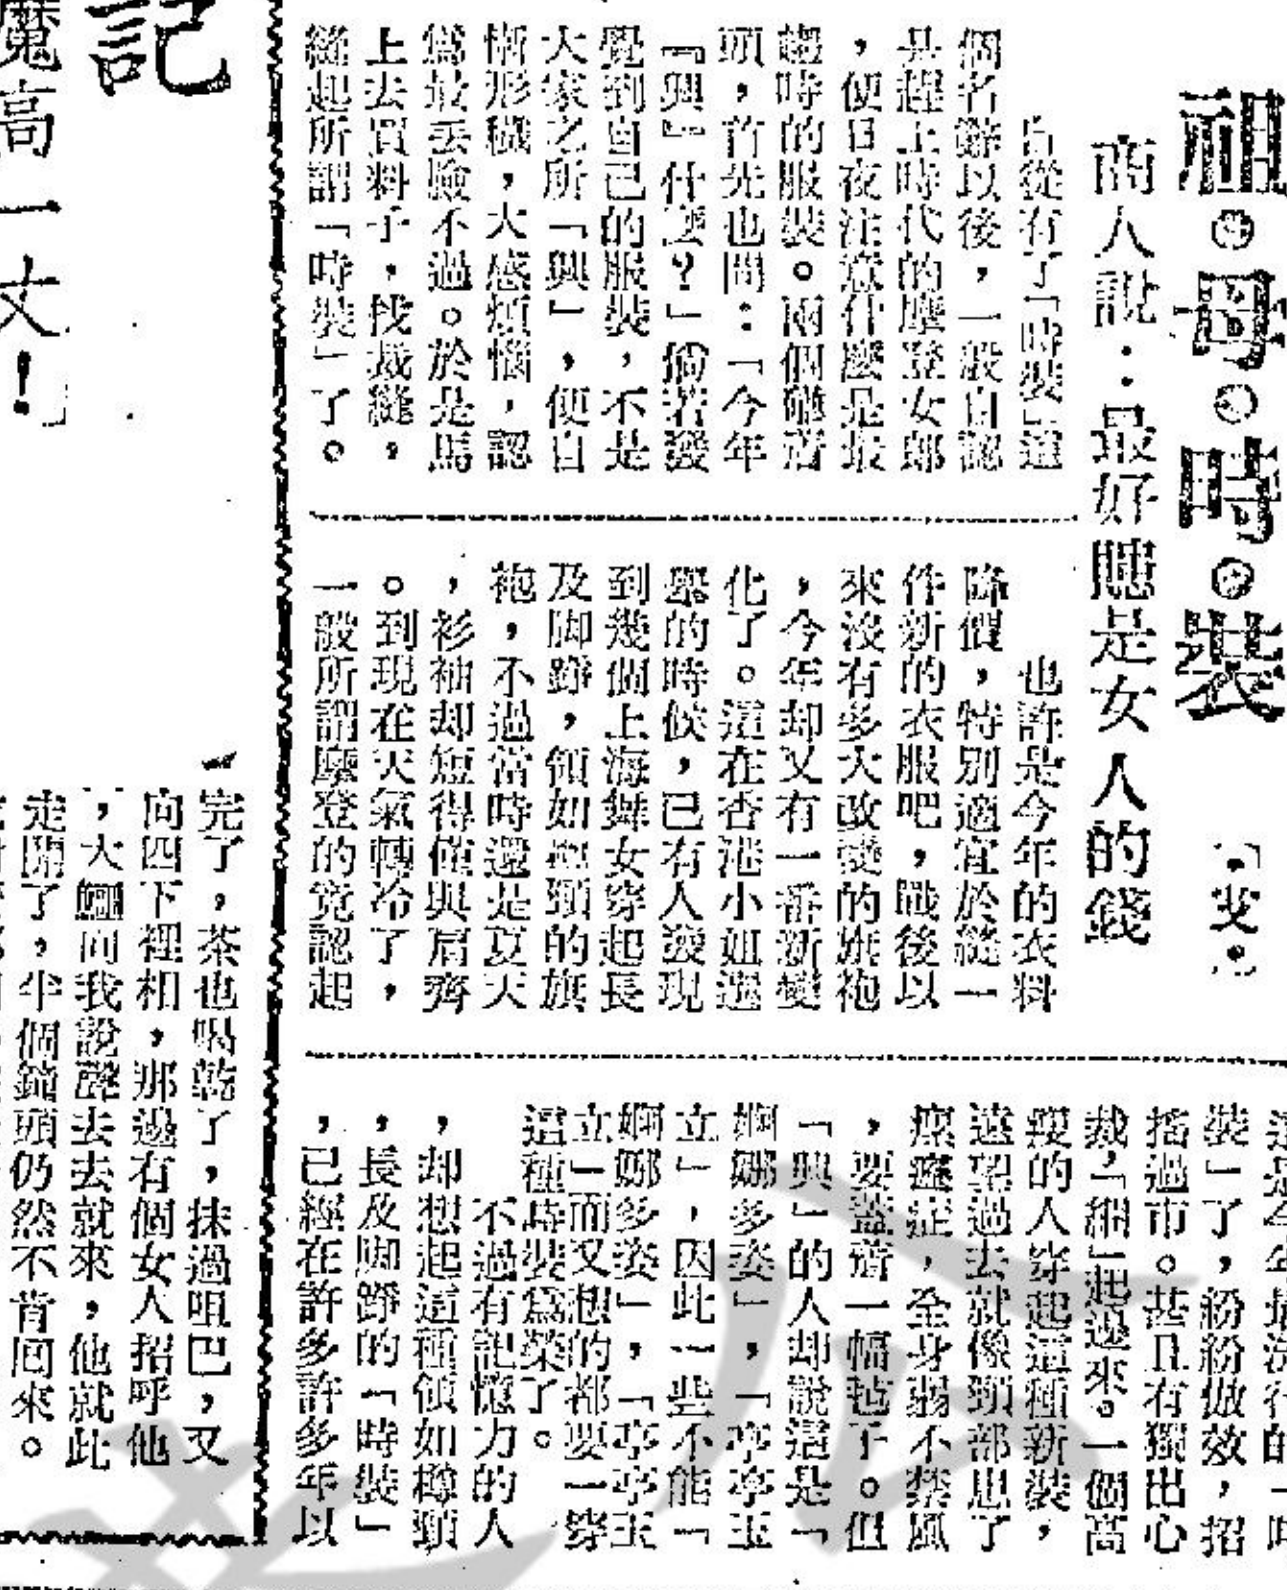 祖·母·時·裝
·艾·
商人說：最好賺是女人的錢
自從有了「時裝」這
個名辭以後，一般自認
是趕上時代的摩登女郎
，便日夜注意什麼是最
趨時的服裝。兩個碰着
頭，首先也問：「今年
『興』什麼？」倘若發
覺到自己的服裝，不是
大家之所「興」，便自
慚形穢，大感煩惱，認
爲最丟臉不過。於是馬
上去買料子，找裁縫，
縫起所謂「時裝」了。
也許是今年的衣料
降價，特別適宜於縫一
件新的衣服吧，戰後以
來沒有多大改變的旗袍
，今年却又有一番新變
化了。這在香港小姐選
舉的時候，已有人發現
到幾個上海舞女穿起長
及脚踭，領如樽頸的旗
袍，不過當時還是夏天
，衫袖却短得僅與肩齊
。到現在天氣轉冷了，
一般所謂摩登的竟認起
這是今年最流行的「時
裝」了，紛紛倣效，招
搖過市。甚且有獨出心
裁，「綑」起邊來。一個高
瘦的人穿起這種新裝，
遠望過去就像頸部患了
瘰癧症，全身弱不禁風
，要蓋着一幅毡子。但
「興」的人却說這是「
婀娜多姿」，「亭亭玉
立」，因此一些不能「
婀娜多姿」，「亭亭玉
立」而又想的都要一穿
這種時裝爲榮了。
不過有記憶力的人
，却想起這種領如樽頸
，長及脚踭的「時裝」
，已經在許多許多年以
記
魔高一丈！
完了，茶也喝乾了，抹過咀巴，又
向四下裡相，那邊有個女人招呼他
，大鱷向我說聲去去就來，他就此
走開了，半個鐘頭仍然不肯回來。